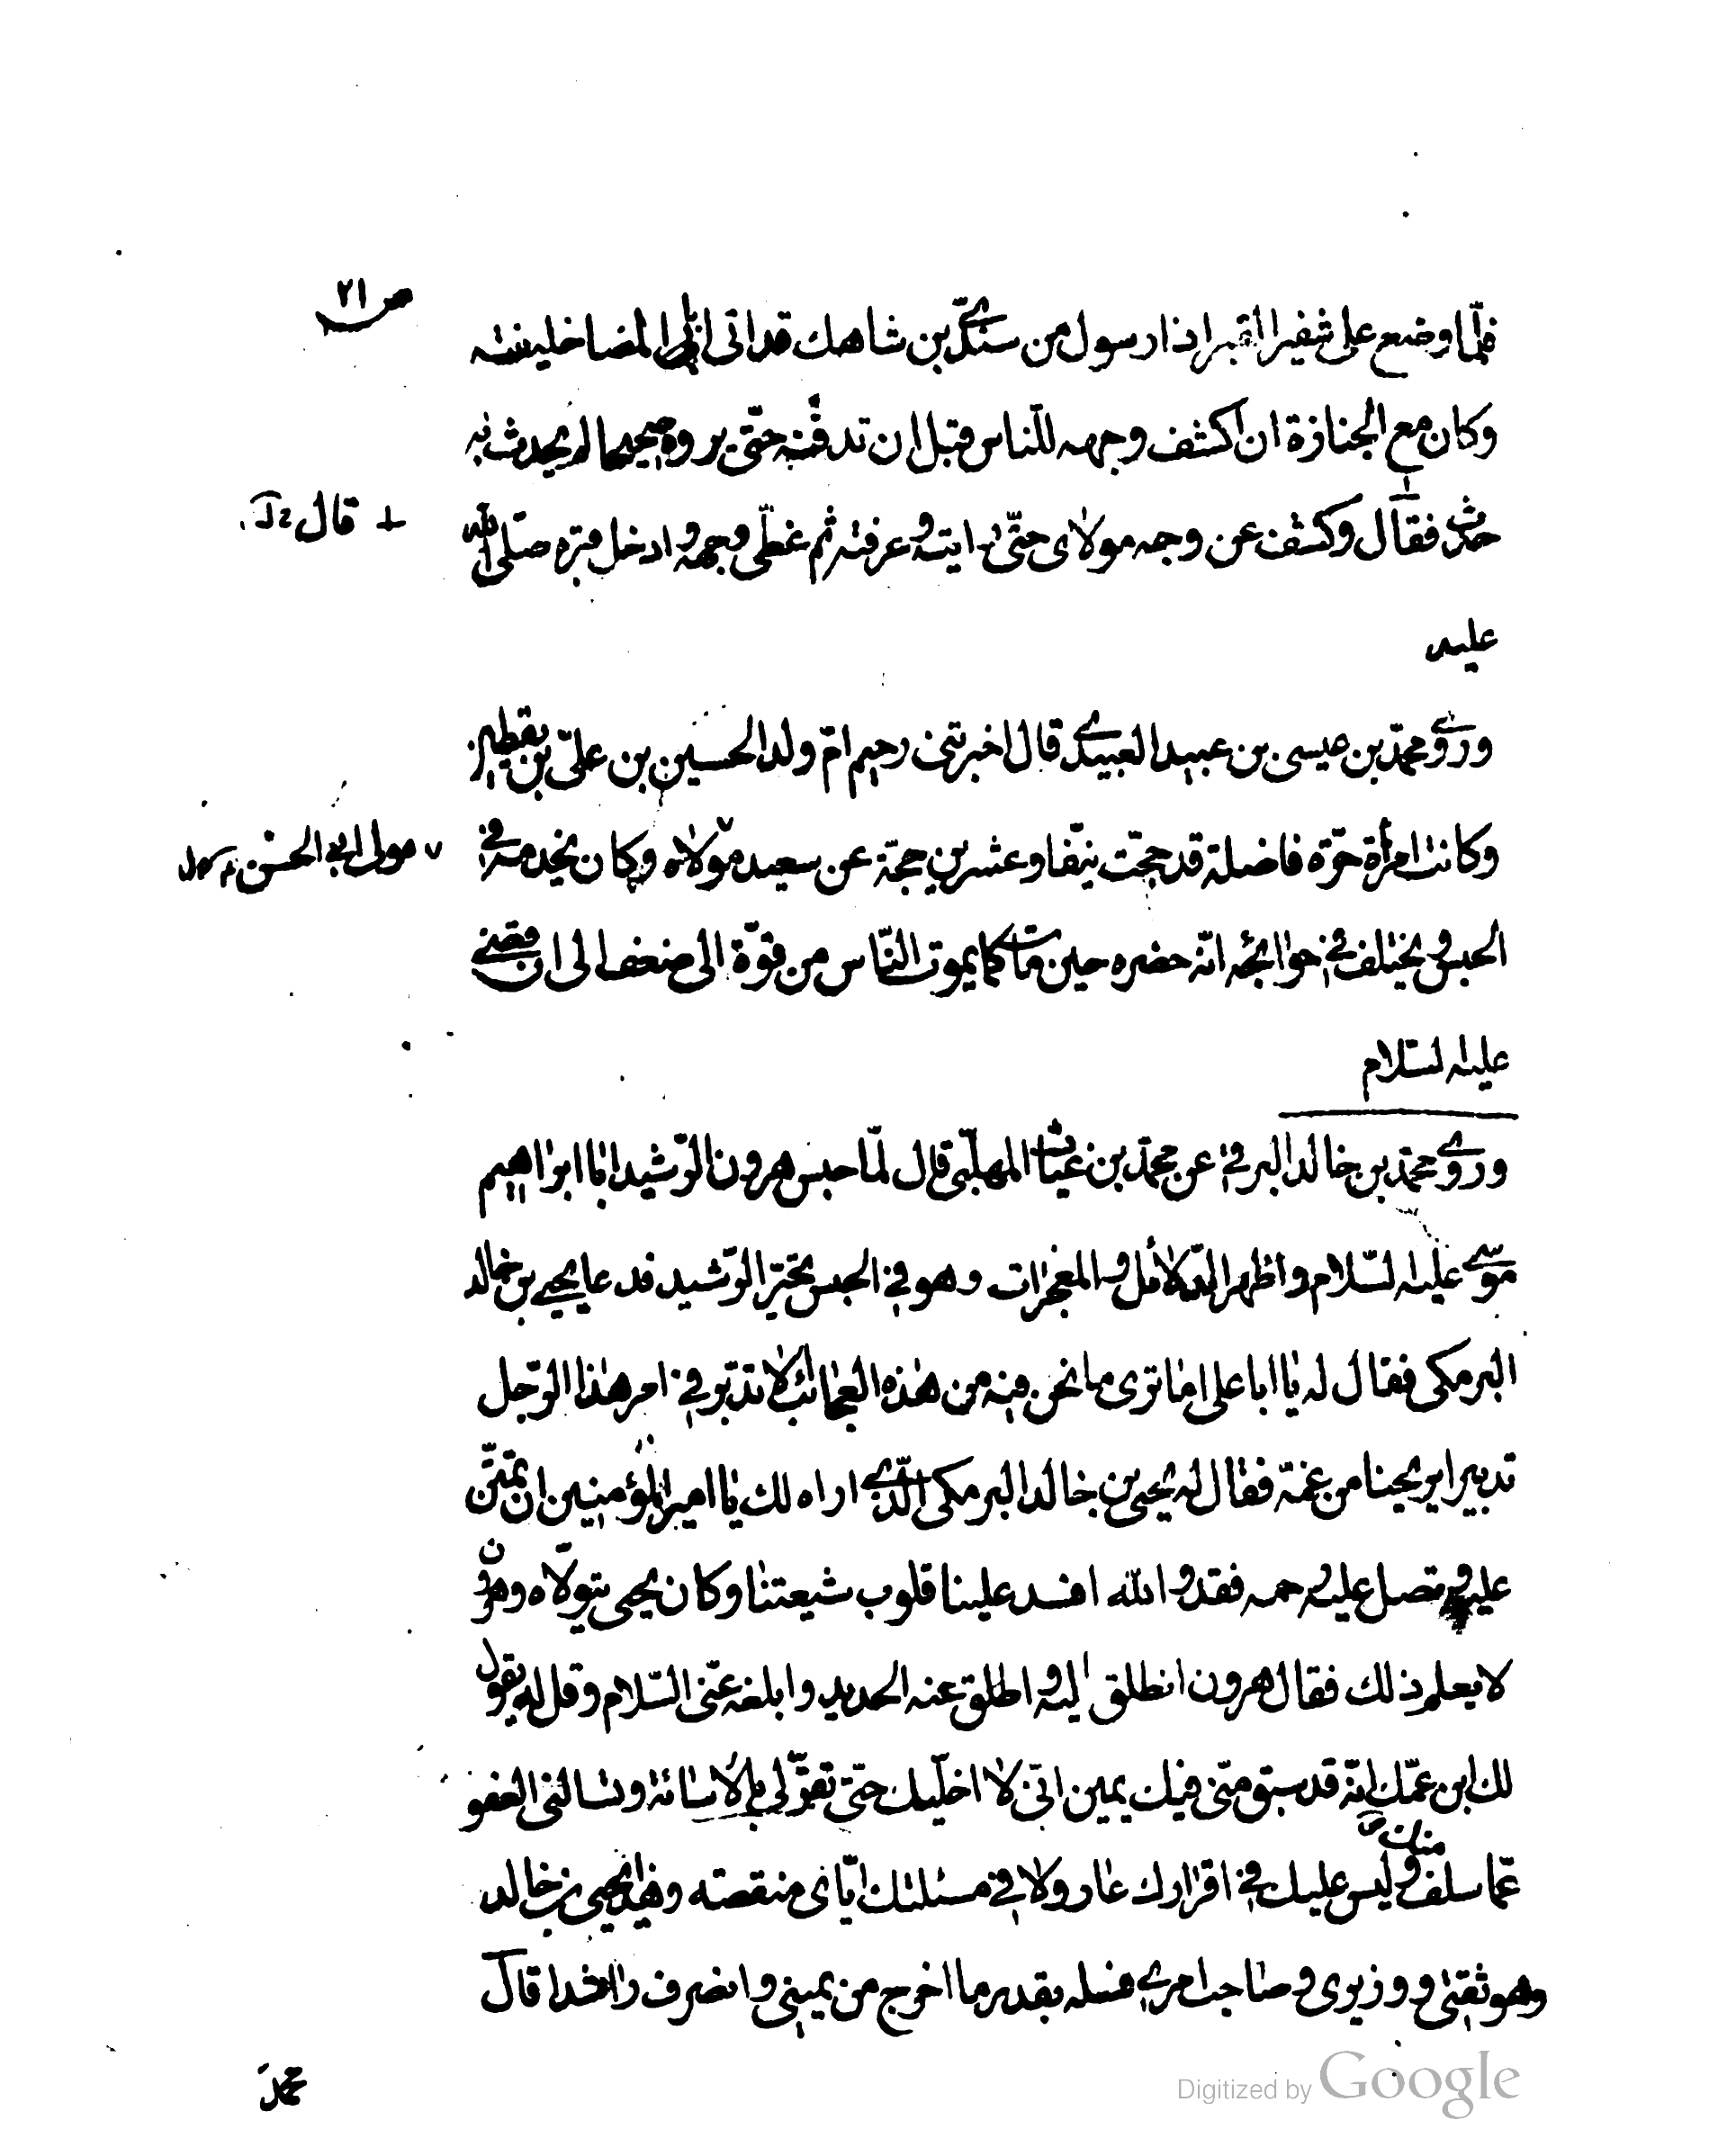 ص ٢١
فلمّا وضع على شفير القبر اذا رسول من سندي بن شاهك قد اتى ابا المضا خليفته
وكان مع الجنازة ان اكشف وجهه للناس قبل ان تدفنه حتّى يروه صحيحا لم يحدث به
حدث فقال وكشف عن وجه مولاى حتّى رايته وعرفته ثم غطّى وجهه وادخل قبره صلى الله
قال
عليه
وروى محمّد بن عيسى بن عبيد العبيدي قال اخبرتنى رحيم امّ ولد الحسين بن علىّ بن يقطين
وكانت امرأة حرّة فاضلة قد حجّت نيّفا وعشرين حجّة عن سعيد مولاه وكان يخدمه في
مولى ابى الحسن
الحبس ويختلف في حوائجه انّه حضره حين مات كما يموت النّاس من قوّة الى ضعف الى ان قضى
عليه السّلام
وروى محمّد بن خالد البرقى عن محمّد بن غياث المهلّبى قال لمّا حبس هرون الرّشيد ابا ابراهيم
موسى عليه السّلام واظهر الدّلائل والمعجزات وهو في الحبس تحيّر الرّشيد فدعا يحيى بن خالد
البرمكى فقال له يا ابا على اما ترى ما نحن فيه من هذه العجائب الا تدبّر في امر هذا الرّجل
تدبيرا يريحنا من غمّه فقال له يحيى بن خالد البرمكى الّذى اراه لك يا امير المؤمنين ان تمتنّ
عليه وتصل عليه رحمه فقد والله افسد علينا قلوب شيعتنا وكان يحيى يتولّاه وهرون
لا يعلم ذلك فقال هرون انطلق اليه واطلق عنه الحديد وابلغه عنّى السّلام وقل له يقول
لك ابن عمّك انّه قد سبق منّى فيك يمين انّى لا اخلّيك حتّى تقرّ لى بالاسائة وتسالنى العفو
عمّا سلف منك وليس عليك في اقرارك عار ولا في مسئلتك ايّاى منقصته وهذا يحيى بن خالد
وهو ثقتى ووزيرى وصاحب امري فسله بقدر ما اخرج من يمينى وانصرف راشدا قال
محمّد
Digitized by Google